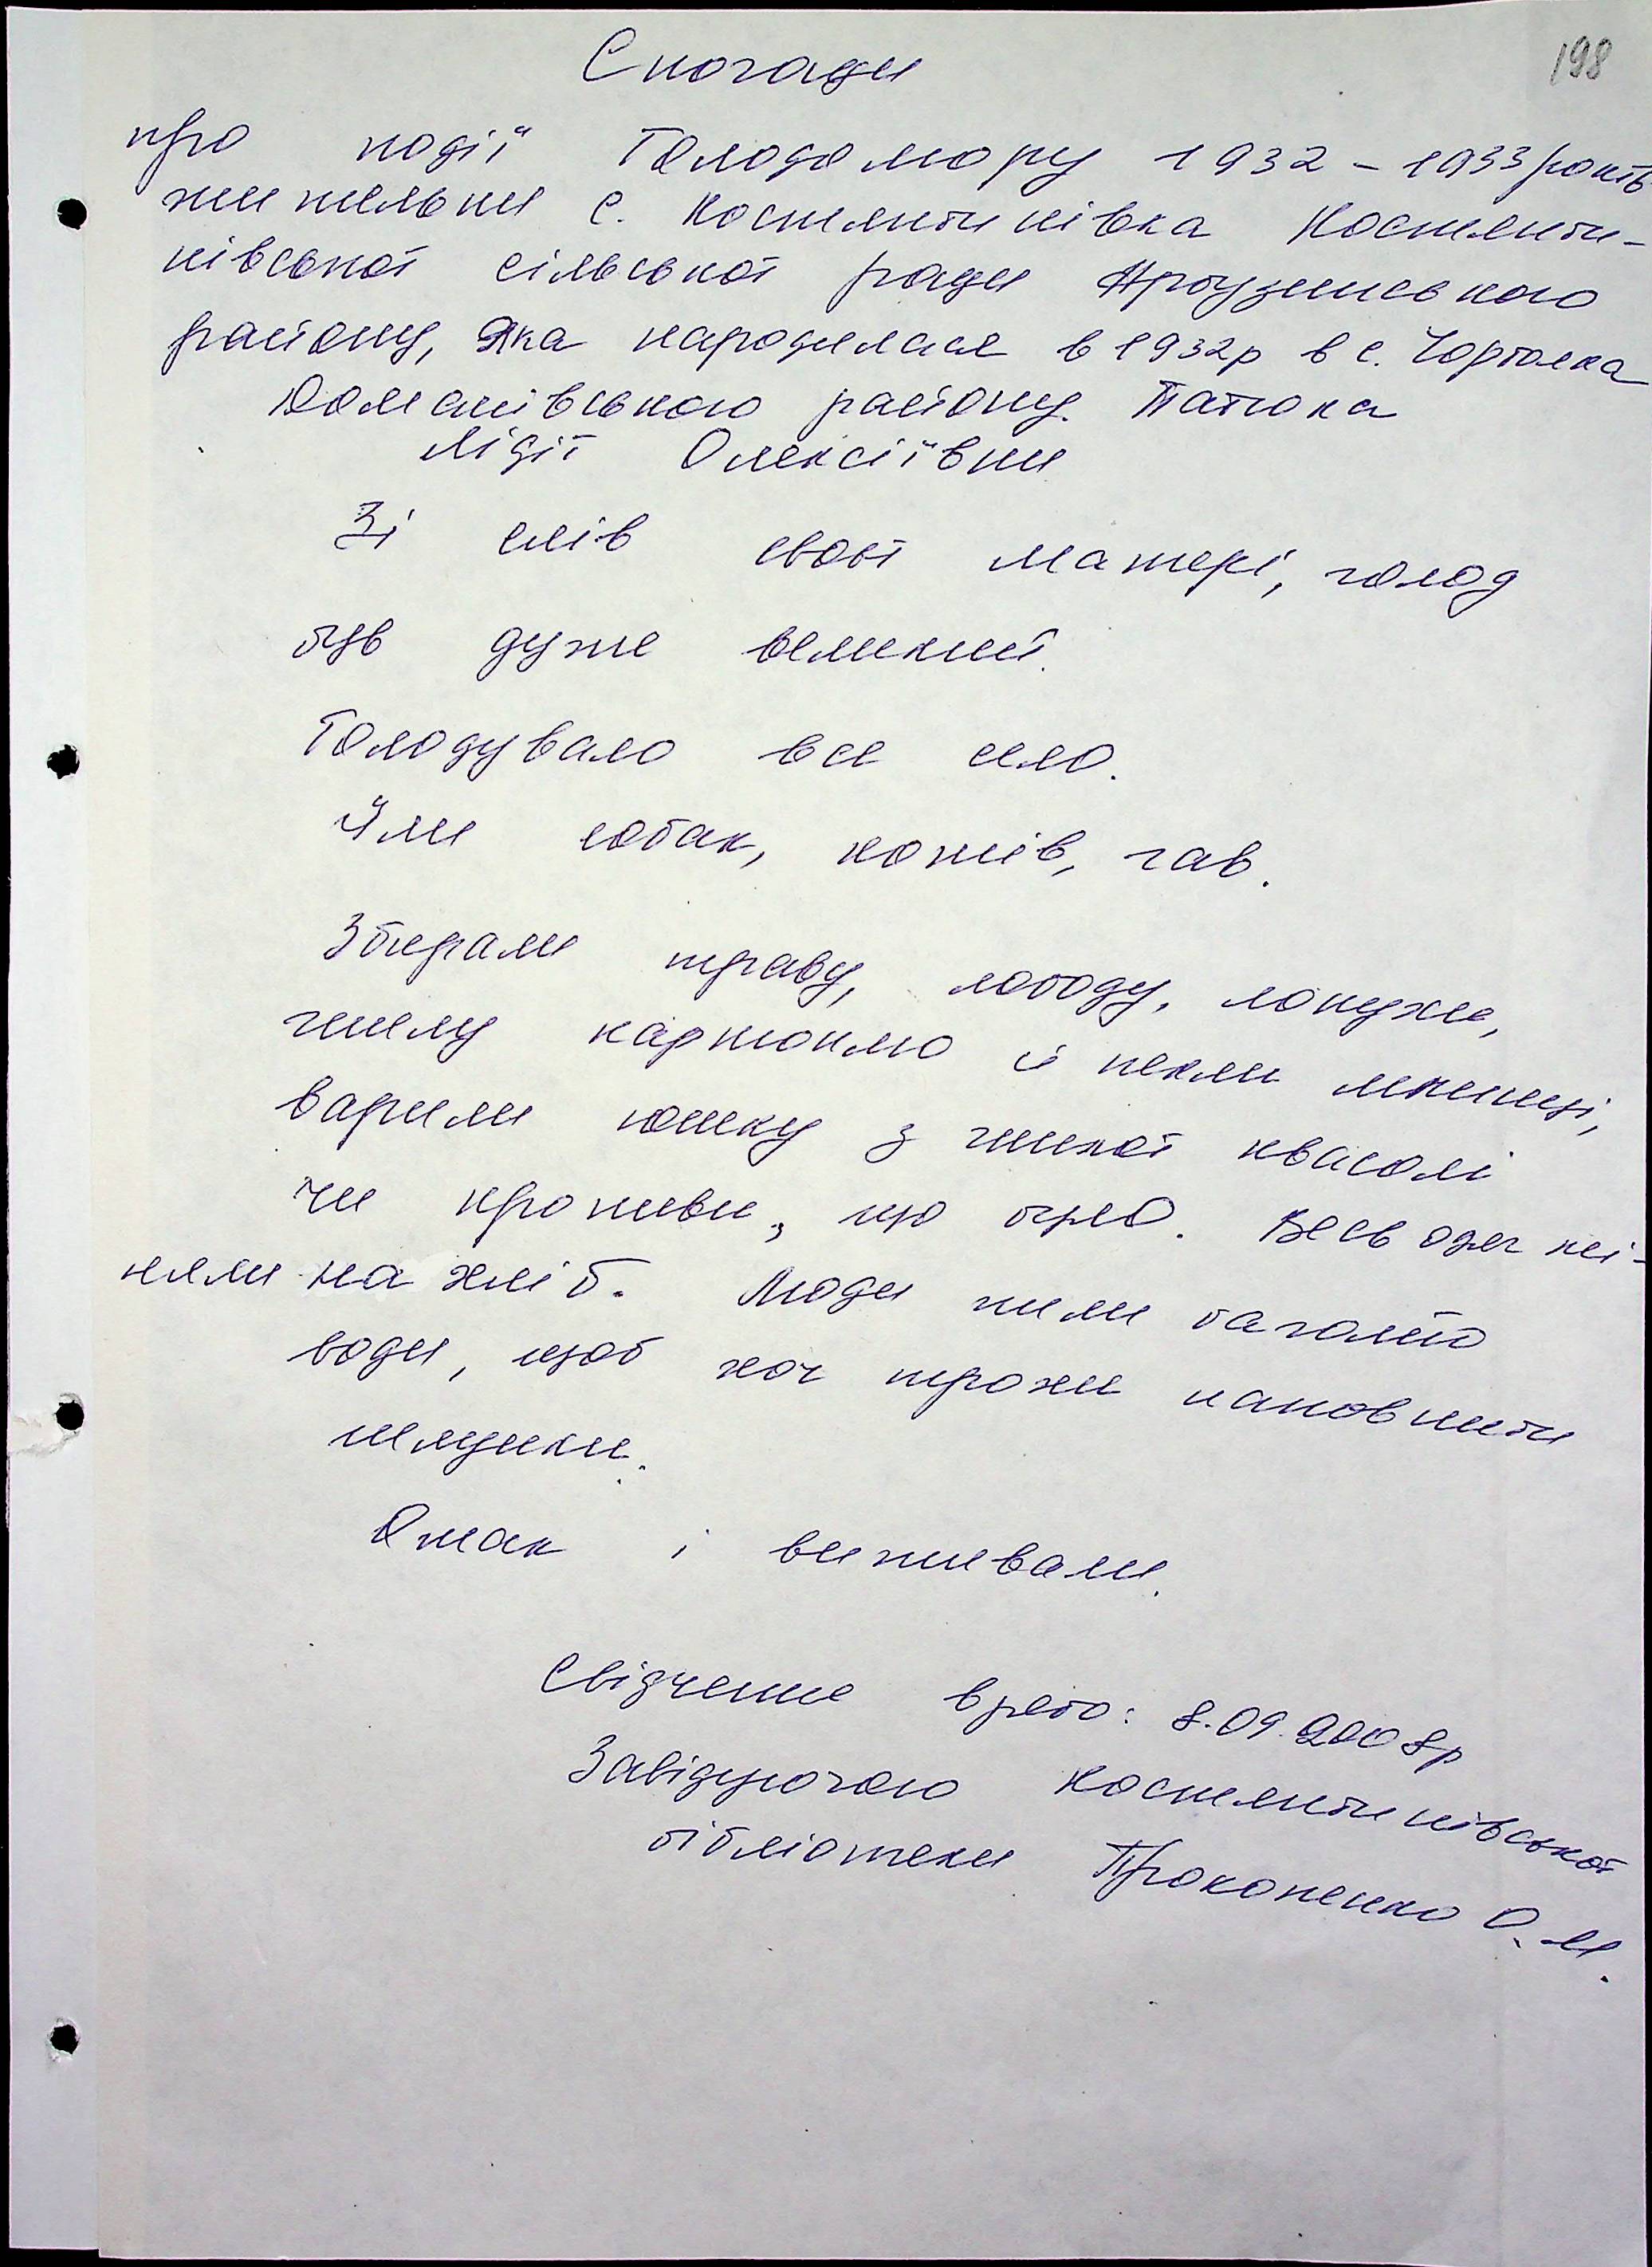 198
Спогади
про події Голодомору 1932 - 1933 років
жительки с. Костянтинівка Костянти-
нівської сільської ради Арбузинського
району, яка народилася в 1932р в с. Чортомка
Доманівського району. Патюка
Лідії Олексіївни
Зі слів своєї матері, голод
був дуже великий.
Голодувало все село.
Їли собак, котів, гав.
Збирали траву, лободу, лопухи,
гнилу картоплю й пекли млинці,
варили юшку з гнилої квасолі
чи кропиви, що було. Весь одяг мі-
няли на хліб. Люди пили багато
води, щоб хоч трохи наповнити
шлунки.
Отак і виживали.
Свідчення взято: 8.09.2008р
Завідуючою Костянтинівської
бібліотеки Прокопенко О. М.